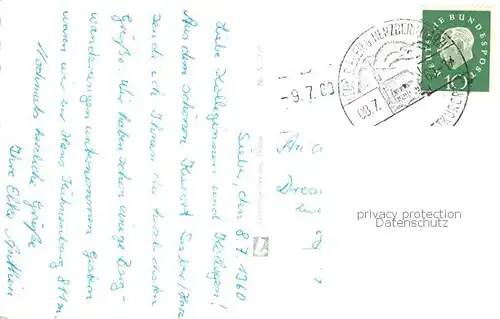 Sieber, den 8.7.1960
Liebe Kolleginnen und Kollegen!
Aus dem schönen Kurort Sieber/Harz
sende ich Ihnen die herzlichsten
Grüße. Wir haben schon einige Berg-
wanderungen unternommen. Gestern
waren wir zur Hanskühnenburg 811m.
Nochmals herzliche Grüße
Ihre Elke
An d
Dres
privacy protection
Datenschutz
-9.7.60
08.7.
HERZBERG
DEUTSCHE BUNDESPOST
10